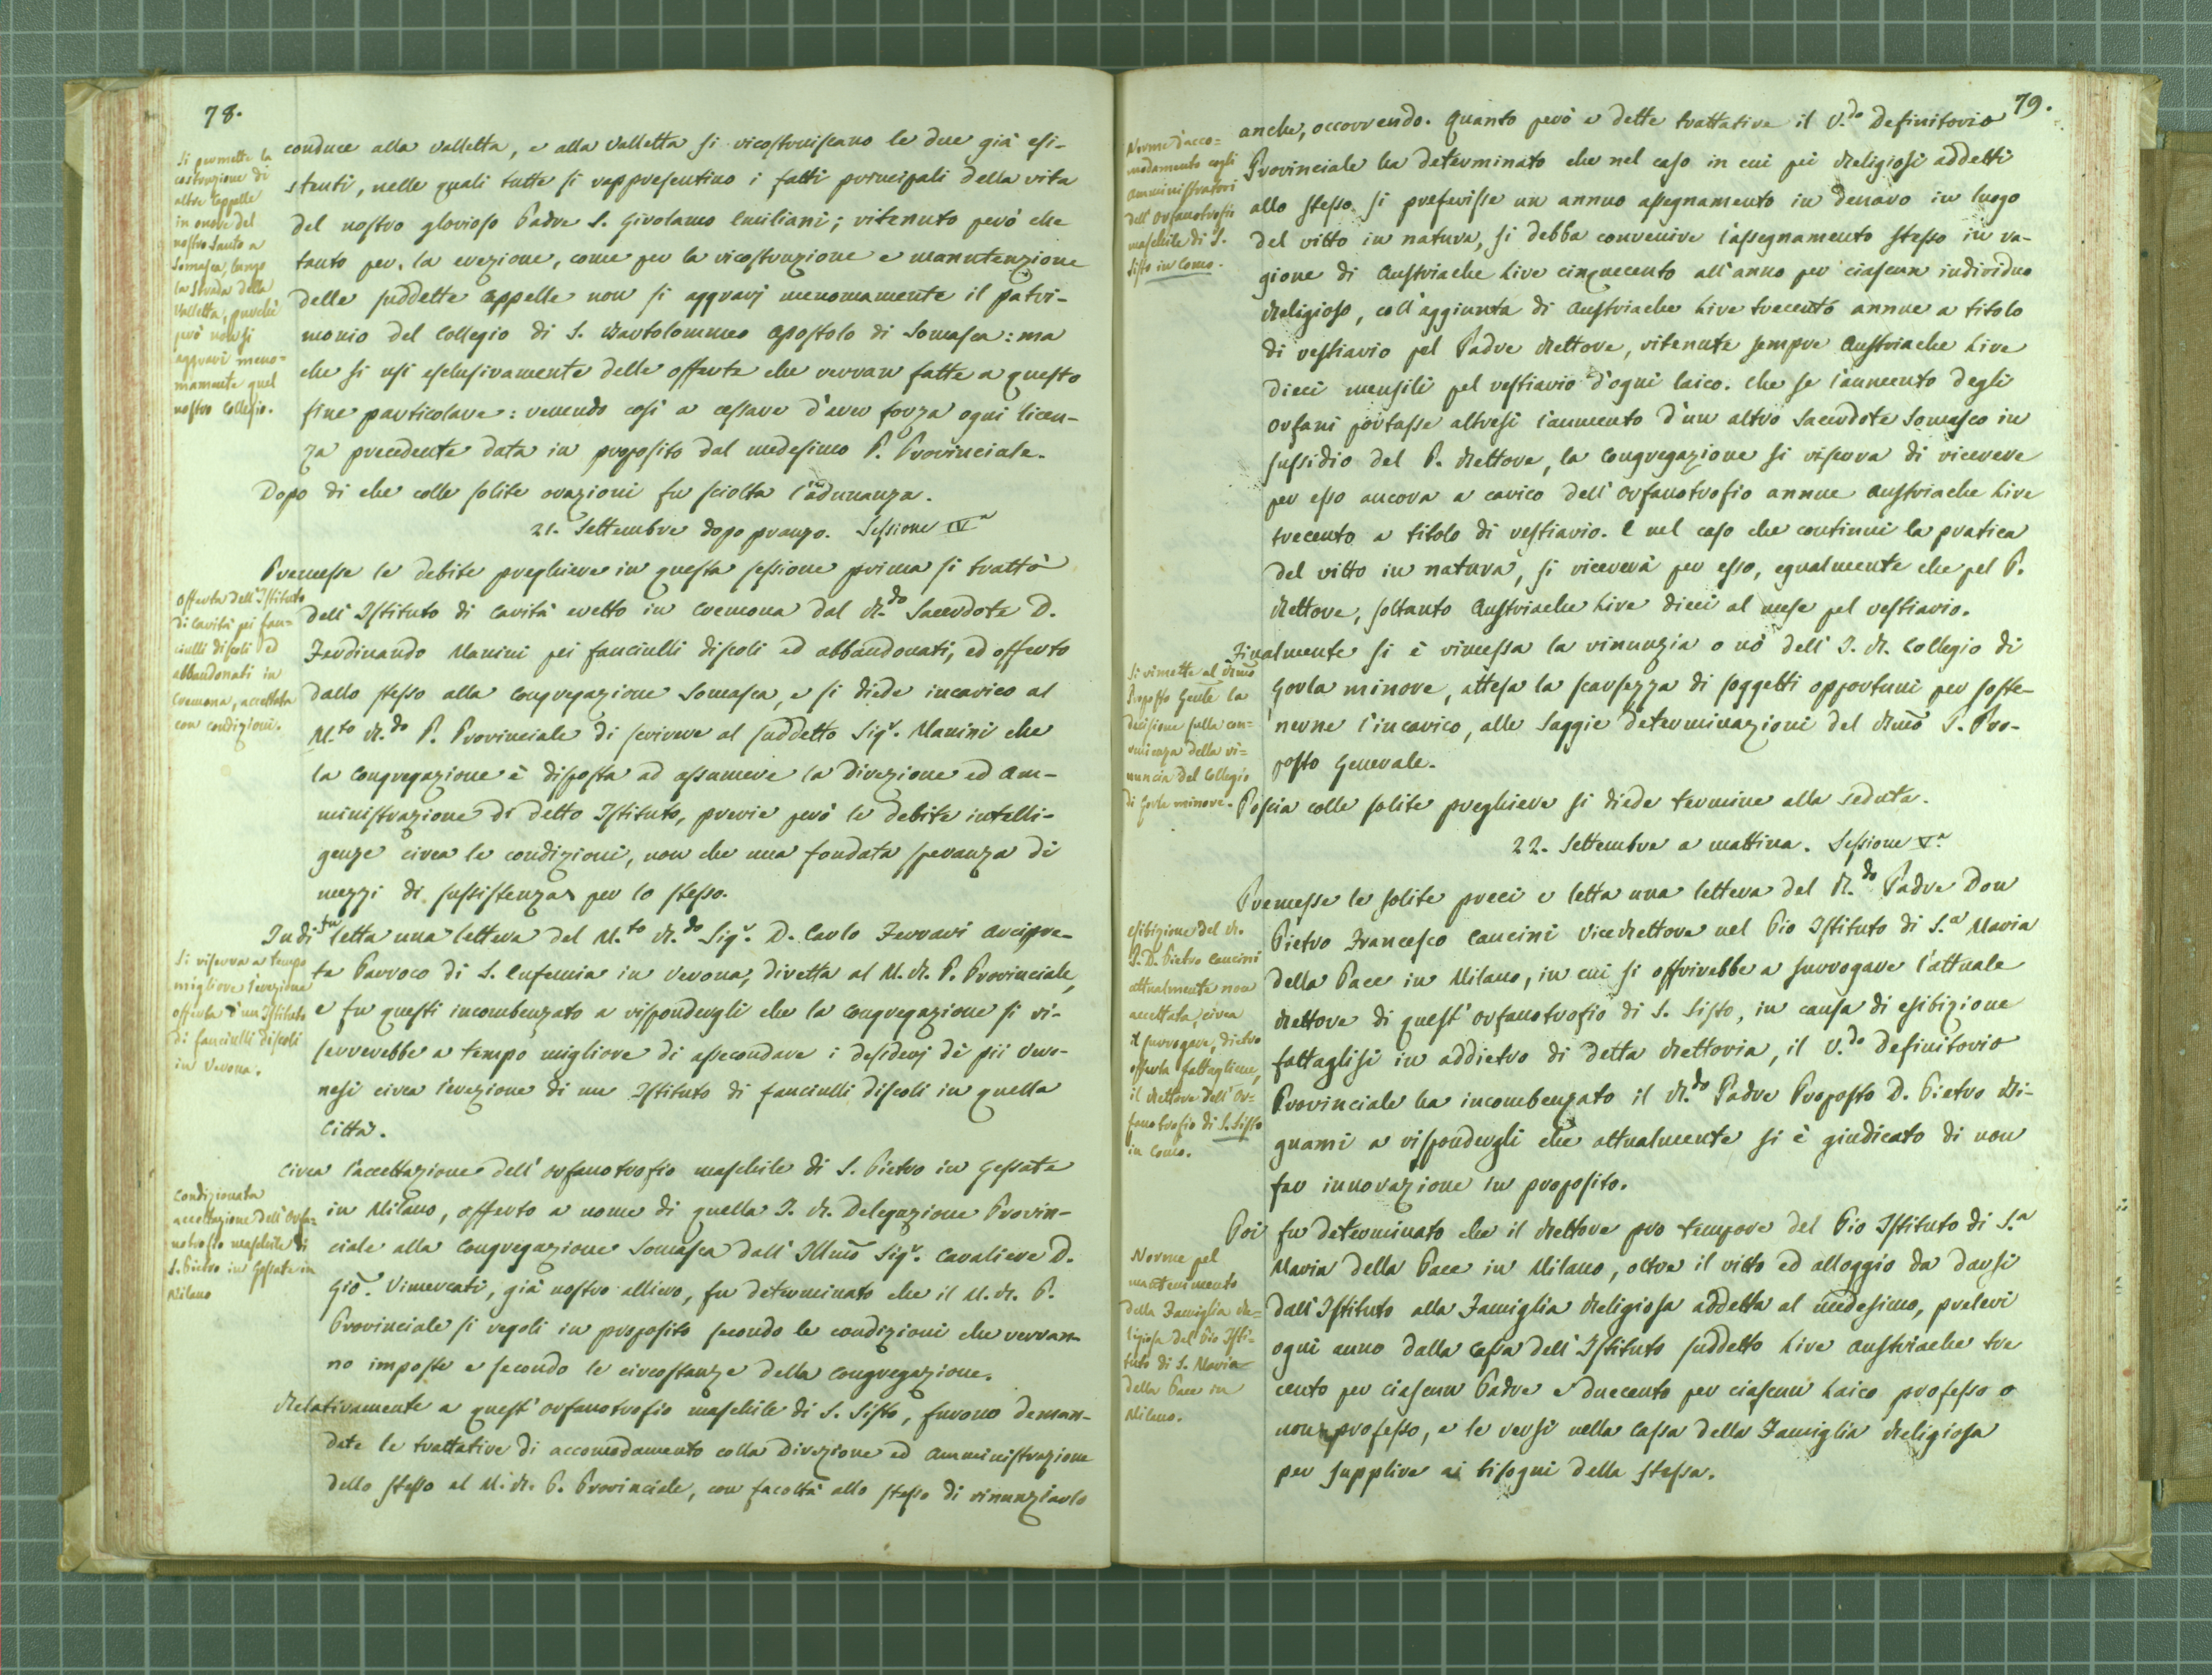 78.
Si permette la
costruzione di
altre Cappelle
in onore del
nostro Santo a
Somasca, lungo
la strada della
Valletta, purchè
però non si
aggravi meno-
mamente quel
nostro Collegio.
conduce alla Valletta, e alla Valletta si ricostruiscano le due già esi-
stenti, nelle quali tutte si rappresentino i fatti principali della vita
del nostro glorioso Padre S. Girolamo Emiliani; ritenuto però che
tanto per la erezione, come per la ricostruzione e manutenzione
delle suddette Cappelle non si aggravj menomamente il patri-
monio del Collegio di S. Bartolommeo Apostolo di Somasca: ma
che si usi esclusivamente delle offerte che verran fatte a questo
fine particolare: venendo così a cessare d'aver forza ogni licen-
za precedente data in proposito dal medesimo P. Provinciale.
Dopo di che colle solite orazioni fu sciolta l'adunanza.
21. Settembre dopo pranzo. Sessione IVª
Premesse le debite preghiere in questa sessione prima si trattò
Offerta dell'Istituto
di Carità pei fan-
ciulli discoli ed
abbandonati in
Cremona, accettata
con condizioni.
dell'Istituto di Carità eretto in Cremona dal R.do Sacerdote D.
Ferdinando Manini pei fanciulli discoli ed abbandonati, ed offerto
dallo stesso alla Congregazione Somasca, e si diede incarico al
M.to R.do P. Provinciale di scrivere al suddetto Sigr. Manini che
la Congregazione è disposta ad assumere la Direzione ed Am-
ministrazione di detto Istituto, previe però le debite intelli-
genze circa le condizioni, non che una fondata speranza di
mezzi di sussistenza per lo stesso.
Indi fu letta una lettera del M.to R.do Sigr. D. Carlo Ferrari Arcipre-
Si riserva a tempo
migliore l'erezione
offerta d'un Istituto
di fanciulli discoli
in Verona.
te Parroco di S. Eufemia in Verona, diretta al M. R. P. Provinciale,
e fu questi incombenzato a rispondergli che la Congregazione si ri-
serverebbe a tempo migliore di assecondare i desiderj dè pii Vero-
nesi circa l'erezione di un Istituto di fanciulli discoli in quella
Città.
Circa l'accettazione dell'Orfanotrofio maschile di S. Pietro in Gessate
Condizionata
accettazione dell'Orfa-
notrofio maschile di
S. Pietro in Gessate in
Milano
in Milano, offerto a nome di quella I. R. Delegazione Provin-
ciale alla Congregazione Somasca dall'Illmo Sigr. Cavaliere D.
Gio. Vimercati, già nostro allievo, fu determinato che il M. R. P.
Provinciale si regoli in proposito secondo le condizioni che verran-
no imposte e secondo le circostanze della Congregazione.
Relativamente a quest'Orfanotrofio maschile di S. Sisto, furono deman-
date le trattative di accomodamento colla Direzione ed Amministrazione
dello stesso al M. R. P. Provinciale, con facoltà allo stesso di rinunziarlo
79.
Norme d'acco-
modamento cogli
Amministratori
dell'Orfanotrofio
maschile di S.
Sisto in Como.
anche, occorrendo. Quanto però a dette trattative il V.do Definitorio
Provinciale ha determinato che nel caso in cui pei Religiosi addetti
allo stesso si preferisse un annuo assegnamento in denaro in luogo
del vitto in natura, si debba convenire l'assegnamento stesso in ra-
gione di Austriache Lire cinquecento all'anno per ciascun individuo
Religioso, coll'aggiunta di Austriache Lire trecento annue a titolo
di vestiario pel Padre Rettore, ritenute sempre Austriache Lire
dieci mensili pel vestiario d'ogni laico. Che se l'aumento degli
Orfani portasse altresì l'aumento d'un altro Sacerdote Somasco in
sussidio del P. Rettore, la Congregazione si riserva di ricevere
per esso ancora a carico dell'Orfanotrofio annue Austriache Lire
trecento a titolo di vestiario. E nel caso che continui la pratica
del vitto in natura, si riceverà per esso, egualmente che pel P.
Rettore, soltanto Austriache Lire dieci al mese pel vestiario.
Finalmente si è rimessa la rinunzia o nò dell'I. R. Collegio di
Si rimette al Rmo
Preposto Gente la
decisione sulla con-
venienza della ri-
nuncia del Collegio
di Gorla minore.
Gorla minore, attesa la scarsezza di soggetti opportuni per soste-
nerne l'incarico, alle saggie determinazioni del Rmo P. Pre-
posto Generale.
Poscia colle solite preghiere si diede termine alla seduta.
22. Settembre a mattina. Sessione Vª
Premesse le solite preci e letta una lettera del R.do Padre Don
Esibizione del R.
P. D. Pietro Cancini
attualmente non
accettata, circa
il surrogare, dietro
offerta fattagliene,
il Rettore dell'Or-
fanotrofio di S. Sisto
in Como.
Pietro Francesco Cancini ViceRettore nel Pio Istituto di S.a Maria
della Pace in Milano, in cui si offrirebbe a surrogare l'attuale
Rettore di quest'Orfanotrofio di S. Sisto, in causa di esibizione
fattaglisi in addietro di detta Rettoria, il V.do Definitorio
Provinciale ha incombenzato il R.do Padre Preposto D. Pietro Ri-
gnami a rispondergli che attualmente si è giudicato di non
far innovazione in proposito.
Poi fu determinato che il Rettore pro tempore del Pio Istituto di S.a
Norme pel
mantenimento
della Famiglia Re-
ligiosa del Pio Isti-
tuto di S. Maria
della Pace in
Milano.
Maria della Pace in Milano, oltre il vitto ed alloggio da darsi
dall'Istituto alla Famiglia Religiosa addetta al medesimo, prelevi
ogni anno dalla Cassa dell'Istituto suddetto Lire Austriache tre
cento per ciascun Padre e duecento per ciascun Laico professo o
non professo, e le versi nella Cassa della Famiglia Religiosa
per supplire ai bisogni della stessa.